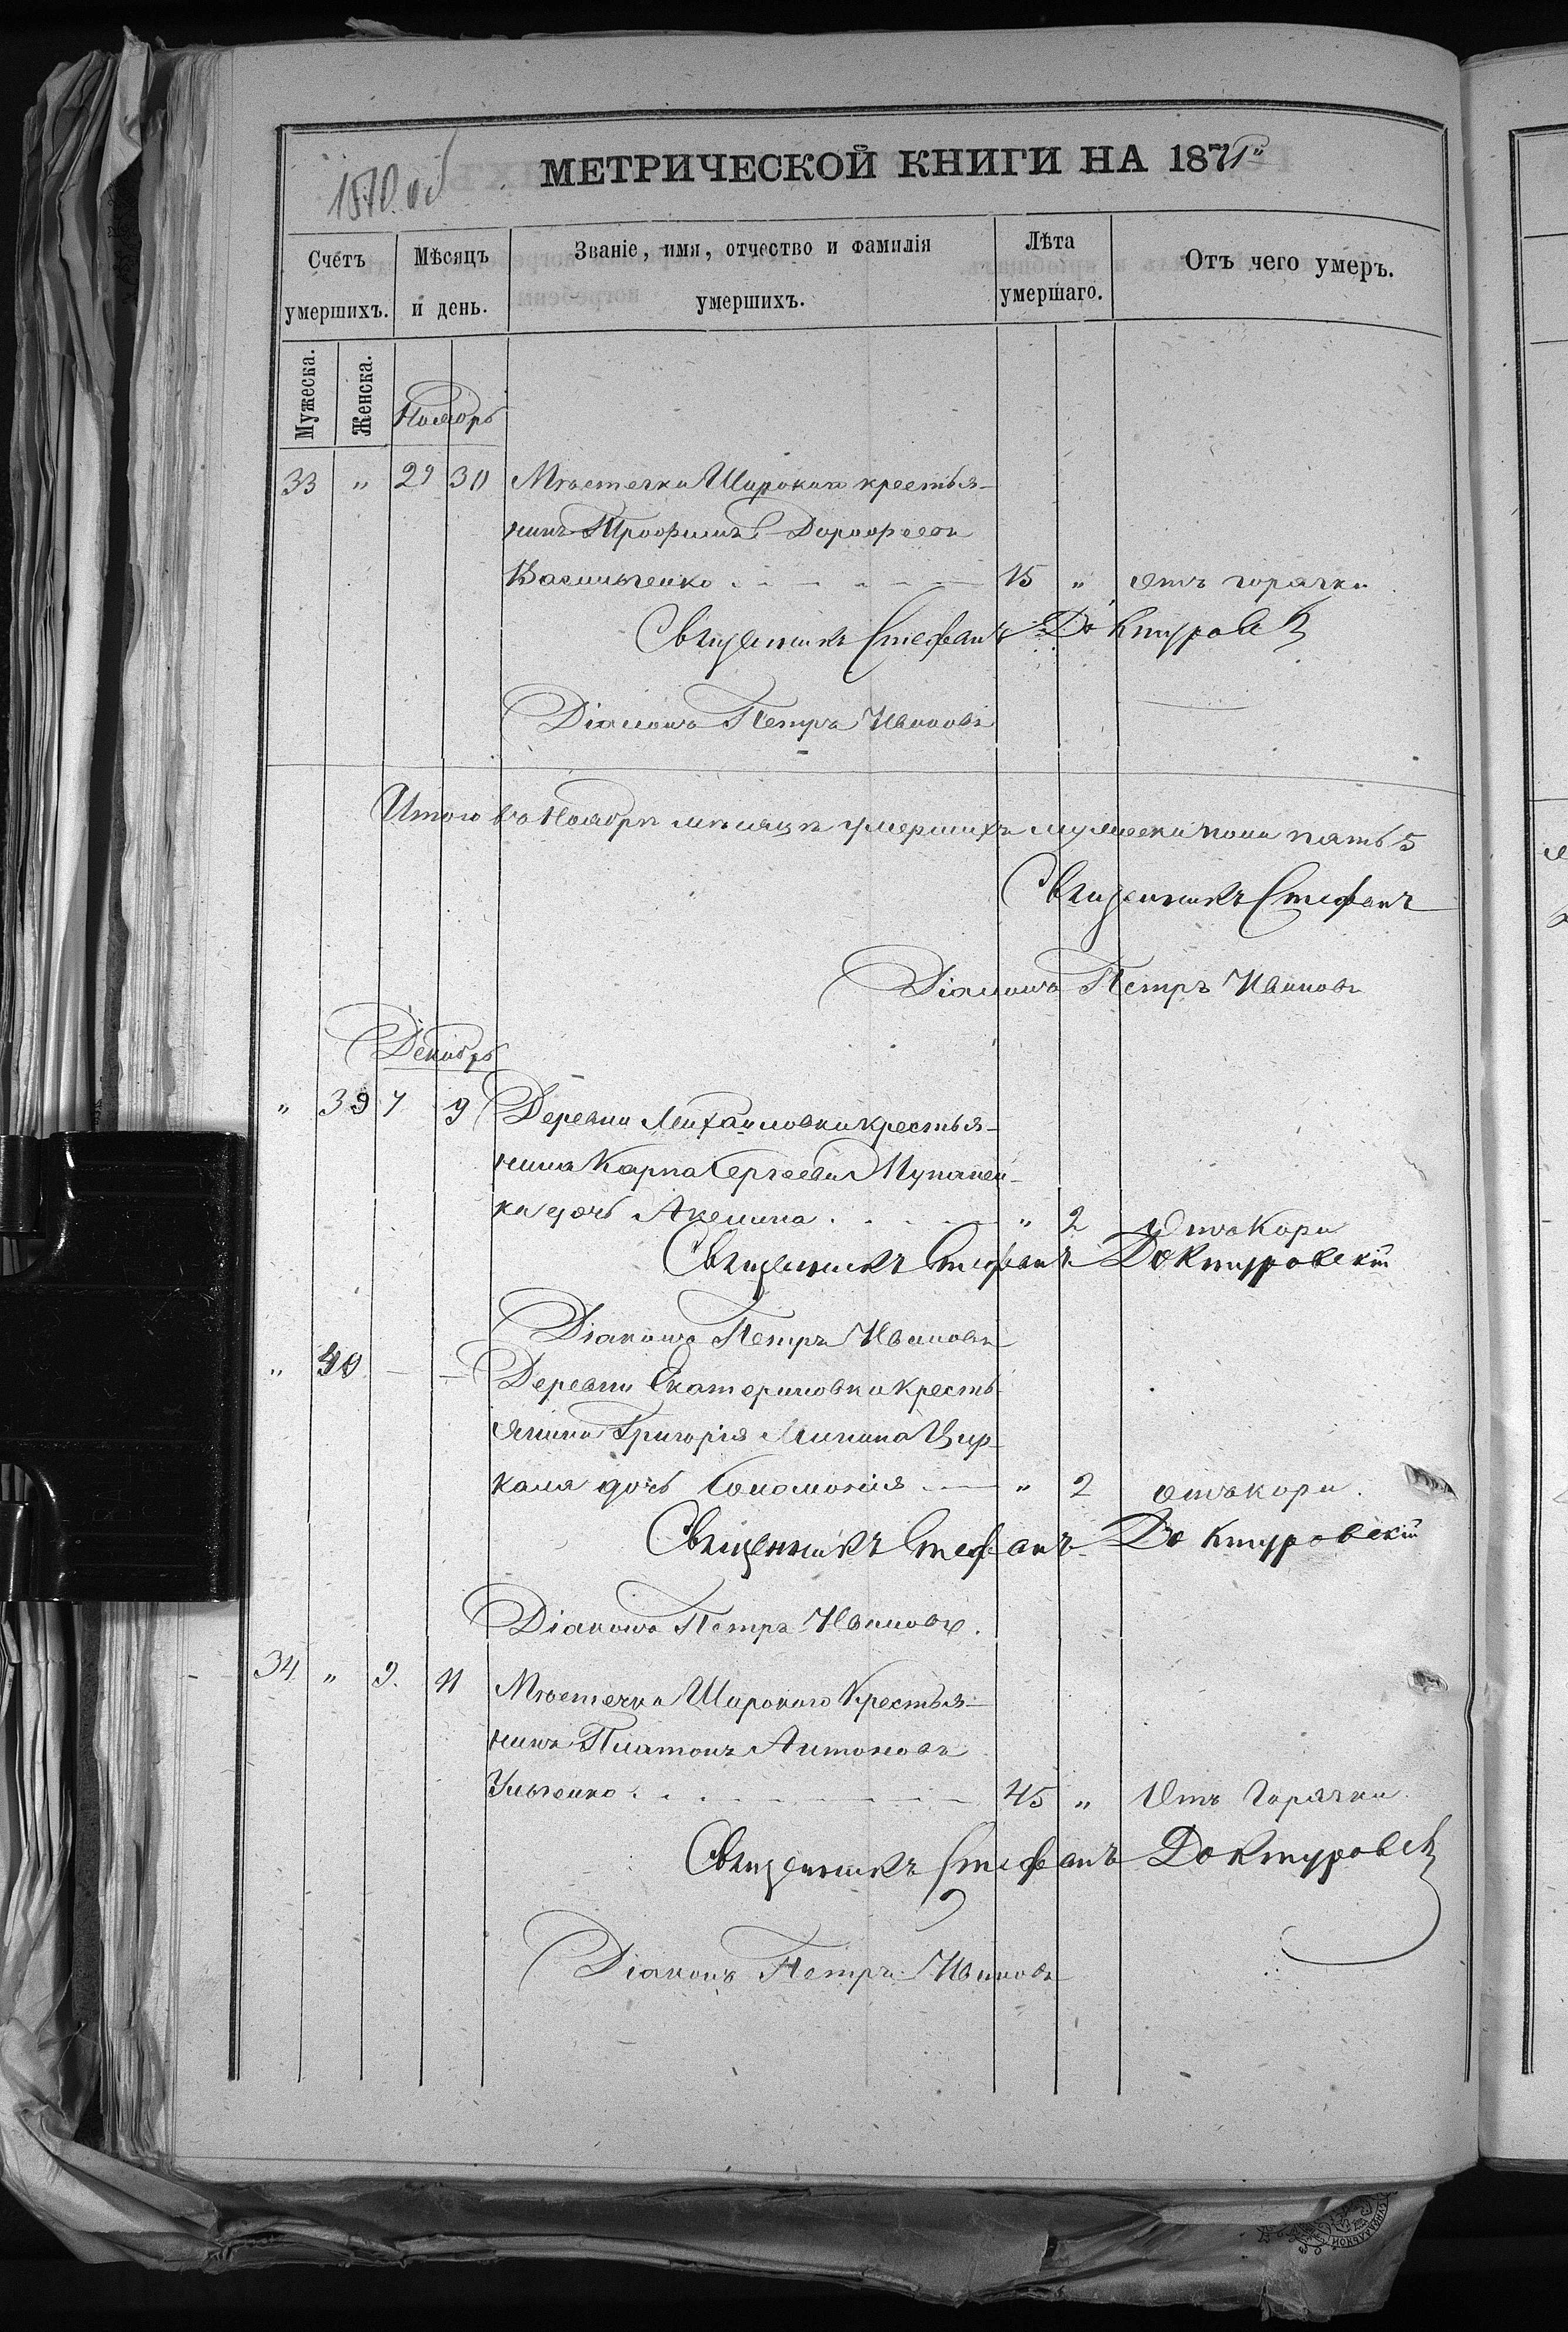 1570 об
МЕТРИЧЕСКОЙ КНИГИ НА 1871й
Счетъ умершихъ.
Мѣсяцъ и день.
Званіе, имя, отчество и фамилія умершихъ.
Лѣта умершаго.
Отъ чего умеръ.
Мужеска.
Женска.
Ноябрь
33 " 29 30 Мѣстечка Широкаго крестья-
нинъ Трофимъ Дорофеевъ
Васильченко 15 " отъ горячки
Священникъ Стефанъ Доктуровск
Діаконъ Петръ Ивановъ
Итого въ Ноябрѣ мѣсяцѣ умершихъ мужеска пола пять 5
Священникъ Стефанъ
Діаконъ Петръ Ивановъ
Декабрь
" 39 7 9 Деревни Михайловки крестья-
нина Карпа Сергѣева
ка дочь Акелина " 2 Отъ Кори
Священникъ Стефанъ Доктуровскій
Діаконъ Петръ Ивановъ
" 40 — — Деревни Екатериновки кресть-
янина Григорія Минина Цир-
каля дочь Соломонія " 2 отъ кори.
Священникъ Стефанъ Доктуровскій
Діаконъ Петръ Ивановъ.
34 " 9. 11 Мѣстечка Широкаго Крестья-
нинъ Платонъ Антоновъ
Ульченко 45 " Отъ Горячки.
Священникъ Стефанъ Доктуровск
Діаконъ Петръ Ивановъ